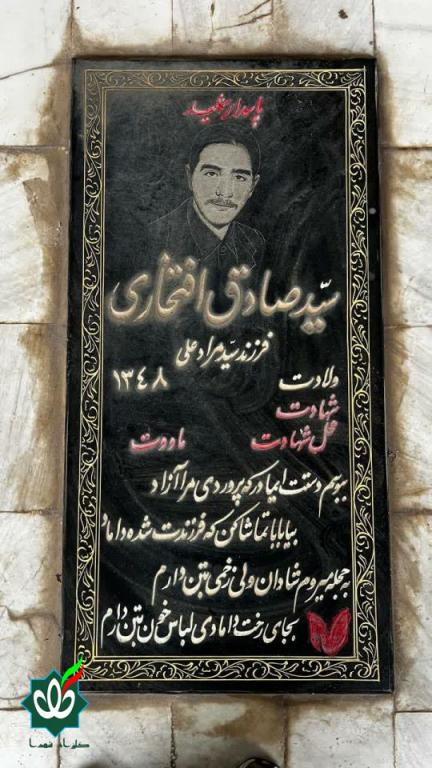 پاسدار شهید
سیّد صادق افتخاری
فرزند سیّد مراد علی
ولادت ۱۳۴۸
شهادت
محل شهادت ماووت
ببوسم دستت ای مادر که پروردی مرا آزاد
بیا بابا تماشا کن که فرزندت شده داماد
به حجله میروم شادان ولی زخمی بتن دارم
بجای رخت دامادی لباس خون بتن دارم